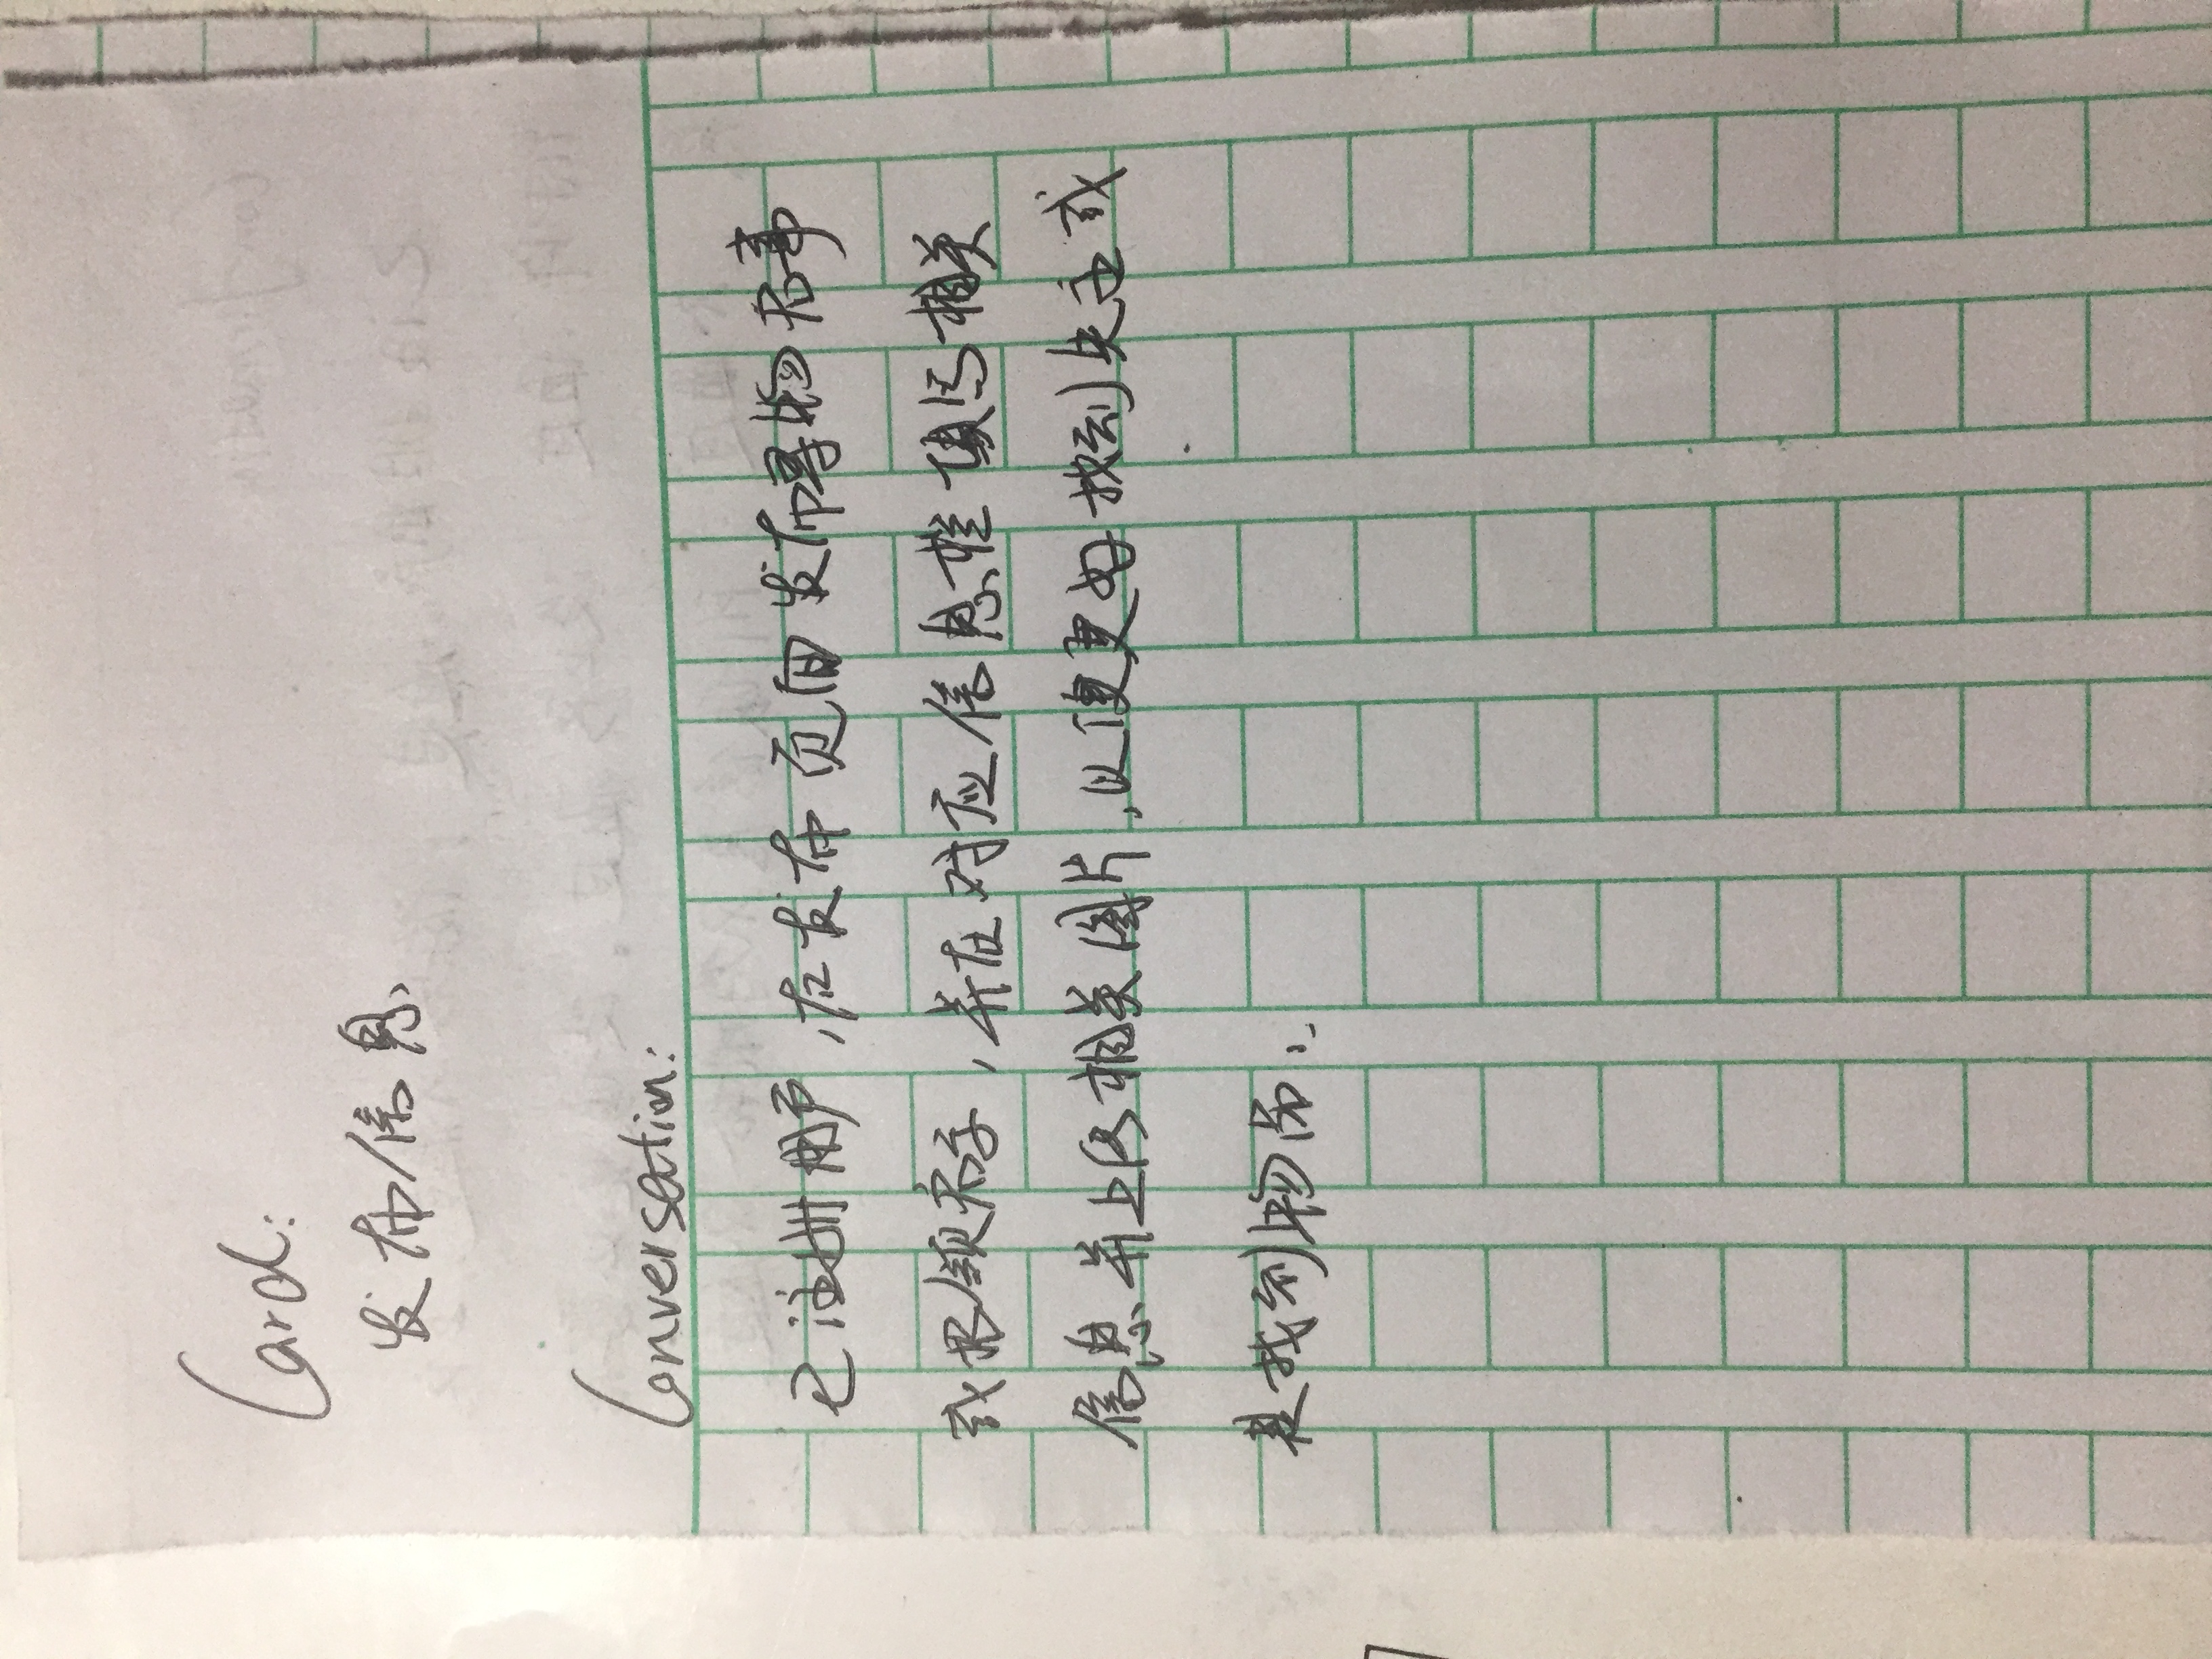 Card:
发布信息
Conversation:
已注册用户,在发布页面发布寻物启事
或招领启示,并在对应信息栏填写相关
信息并上传相关图片,以便更好找到失主或
是找到物品。